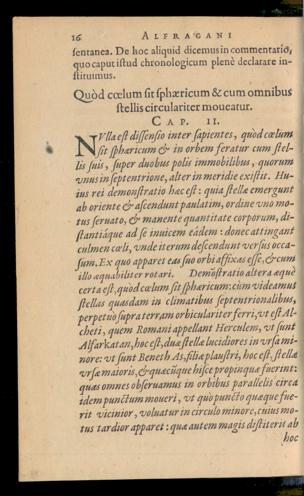 16 ALFRAGANI
sentanea. De hoc aliquid dicemus in commentario,
quo caput istud chronologicum plenè declarare in-
stituimus.
Quòd cœlum sit sphæricum & cum omnibus
stellis circulariter moueatur.
CAP. II.
NVlla est dissensio inter sapientes, quòd cœlum
sit sphæricum & in orbem feratur cum stel-
lis suis, super duobus polis immobilibus, quorum
vnus in septentrione, alter in meridie existit. Hu-
ius rei demonstratio hæc est: quia stellæ emergunt
ab oriente & ascendunt paulatim, ordine vno mo-
tus seruato, & manente quantitate corporum, di-
stantiáque ad se inuicem eádem: donec attingant
culmen cœli, vnde iterum descendunt versus occa-
sum. Ex quo apparet eas suo orbi affixas esse, & cum
illo æquabiliter rotari. Demõstratio altera æquè
certa est, quòd cœlum sit sphæricum: cùm videamus
stellas quasdam in climatibus septentrionalibus,
perpetuò supra terram orbiculariter ferri, vt est Al-
cheti, quem Romani appellant Herculem, vt sunt
Alfarkatan, hoc est, duæ stellæ lucidiores in vrsa mi-
nore: vt sunt Beneth As, filiæ plaustri, hoc est, stellæ
vrsæ maioris, & quæcũque hisce propinquæ fuerint:
quas omnes obseruamus in orbibus parallelis circa
idem punctum moueri, vt quò puncto quæque fue-
rit vicinior, voluatur in circulo minore, cuius mo-
tus tardior apparet: quæ autem magis distiterit ab
hoc